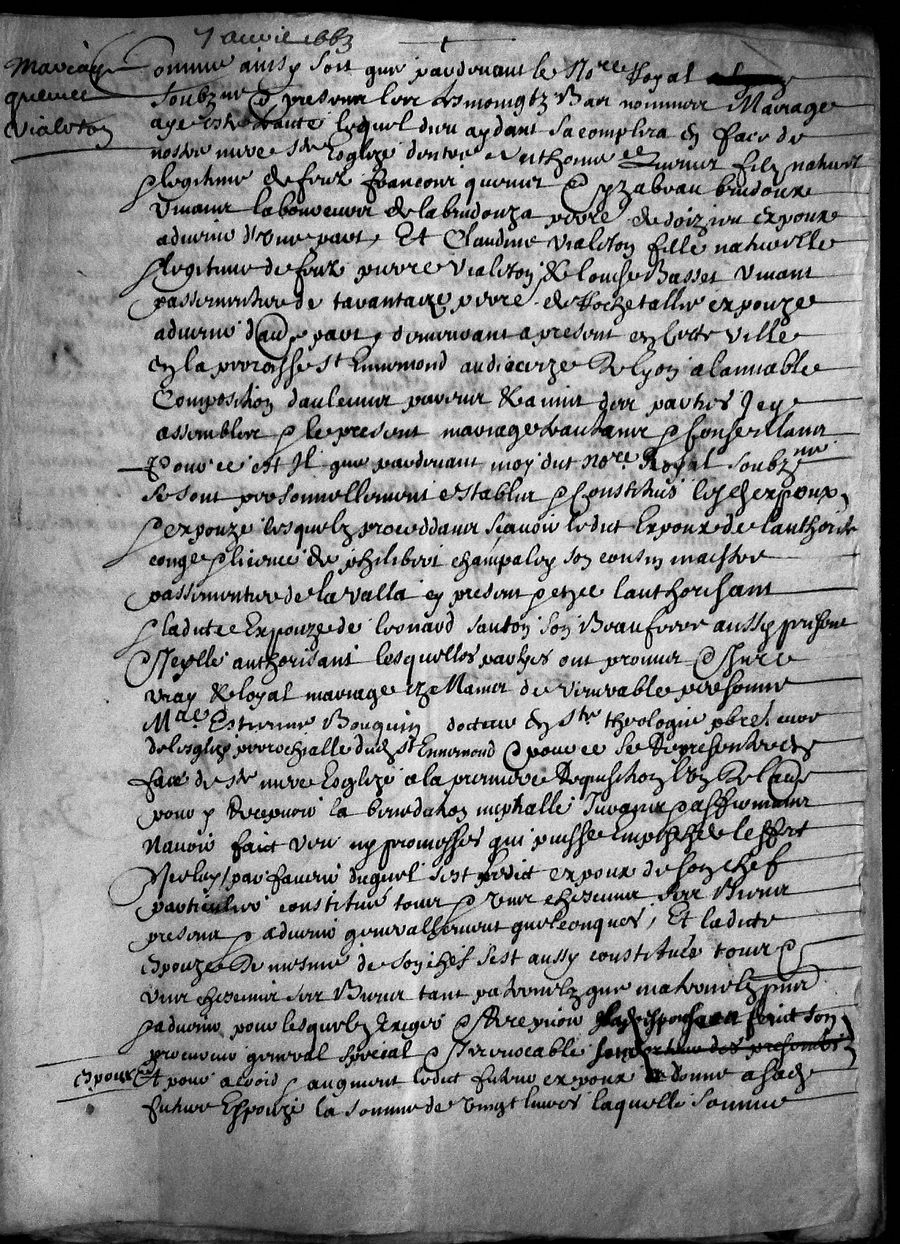 7 avril 1663
Mariage
quemet
vialeton
Comme ainsy soit que pardevant le No.re Royal
soubzne & presens les tesmoingtz bas nommes Mariage
aye esté traité lequel dieu aydant sacomplira en face de
nostre mere Ste Esglize dentre Anthoine quemet filz naturel
& legitime de feux francois quemet & yzabeau bridoure
vivant laboureur de labridouza perre de doizieu expoux
advenir d'une part, Et Claudine vialeton fille naturelle
& legitime de feux pierre vialeton & de louise Basset vivant
passementier de tarantaize perre de Rochetallie expouze
advenir daude part, demeurant apresent en ceste ville
en la parroisse st Ennemond au dioceze de lyon a lamiable
Composition daulcuns parens & amis des parties Icy
assembles & le present mariage traitans & Conseillans
Pour ce est Il que pardevant moy dict no.re Royal soubzne
se sont personnellement establis & Constitues lesd expoux
& expouze lesquelz proceddans scavoir ledict Expoux de lauthorite
conge & licence de philibert champaley son cousin maistre
passementier de la valla cy present & etcé lauthorisant
& ladicte Expouze de leonard santon son Beaufrere aussy present
& Icelle authorisant lesquelles parties ont promis & Jure
vray & loyal mariage ez Mains de venerable personne
Mre Estienne Bouquin docteur en ste theologie pbre cure
de lesglize parrochialle dud st Ennemond & pour ce se Representer en
face de ste mere Esglize a la premiere Requisition lun de lautre
pour y Recepvoir la benediction nuptialle Jurans & affirmans
Navoir faict veu ny promesses qui puisse Empescher leffect
dIceluy, par faveur duquel sest ledict expoux de son chef
particulier constitué tous & uns chascuns ses Biens
presens & advenir generallement quelconques, Et ladicte
expouze de mesme de son chef sest aussy constituée tous &
uns chascuns ses Biens tant paternelz que maternelz pnts
& advenir pour lesquelz Exiger & Recepvoir
procureur general special & Irrevocable
expoux Et pour acroid & augment ledict futur expoux donne a sade
future Espouze la somme de vingt livres laquelle somme